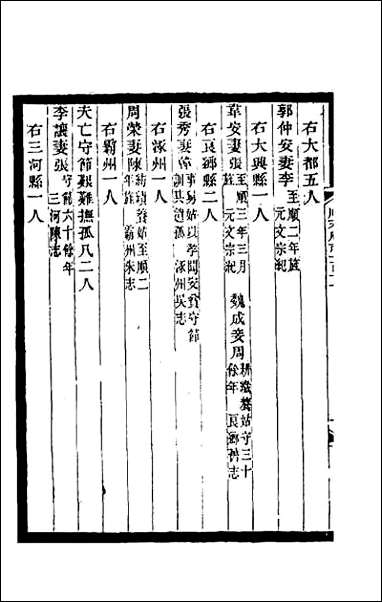 右大都五人
郭仲安妻李至順二年旌元文宗紀
右大興縣一人
韋安妻張至順三年三月旌元文宗紀 魏成妾周耕織養姑守三十餘年良鄉舊志
右良鄉縣二人
張秀妻韓事易姑以孝聞安貧守節訓其遺孤涿州吳志
右涿州一人
周榮妻陳紡績養姑至順二年旌霸州朱志
右霸州一人
夫亡守節艱難撫孤凡二人
李讓妻張守節六十餘年三河陳志
右三河縣一人